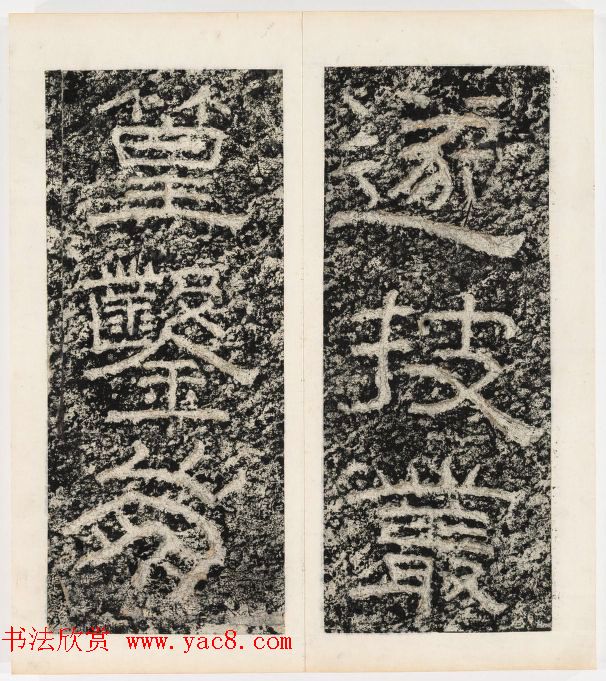 遂拔叢
篁鑿
书法欣赏 www.yac8.com